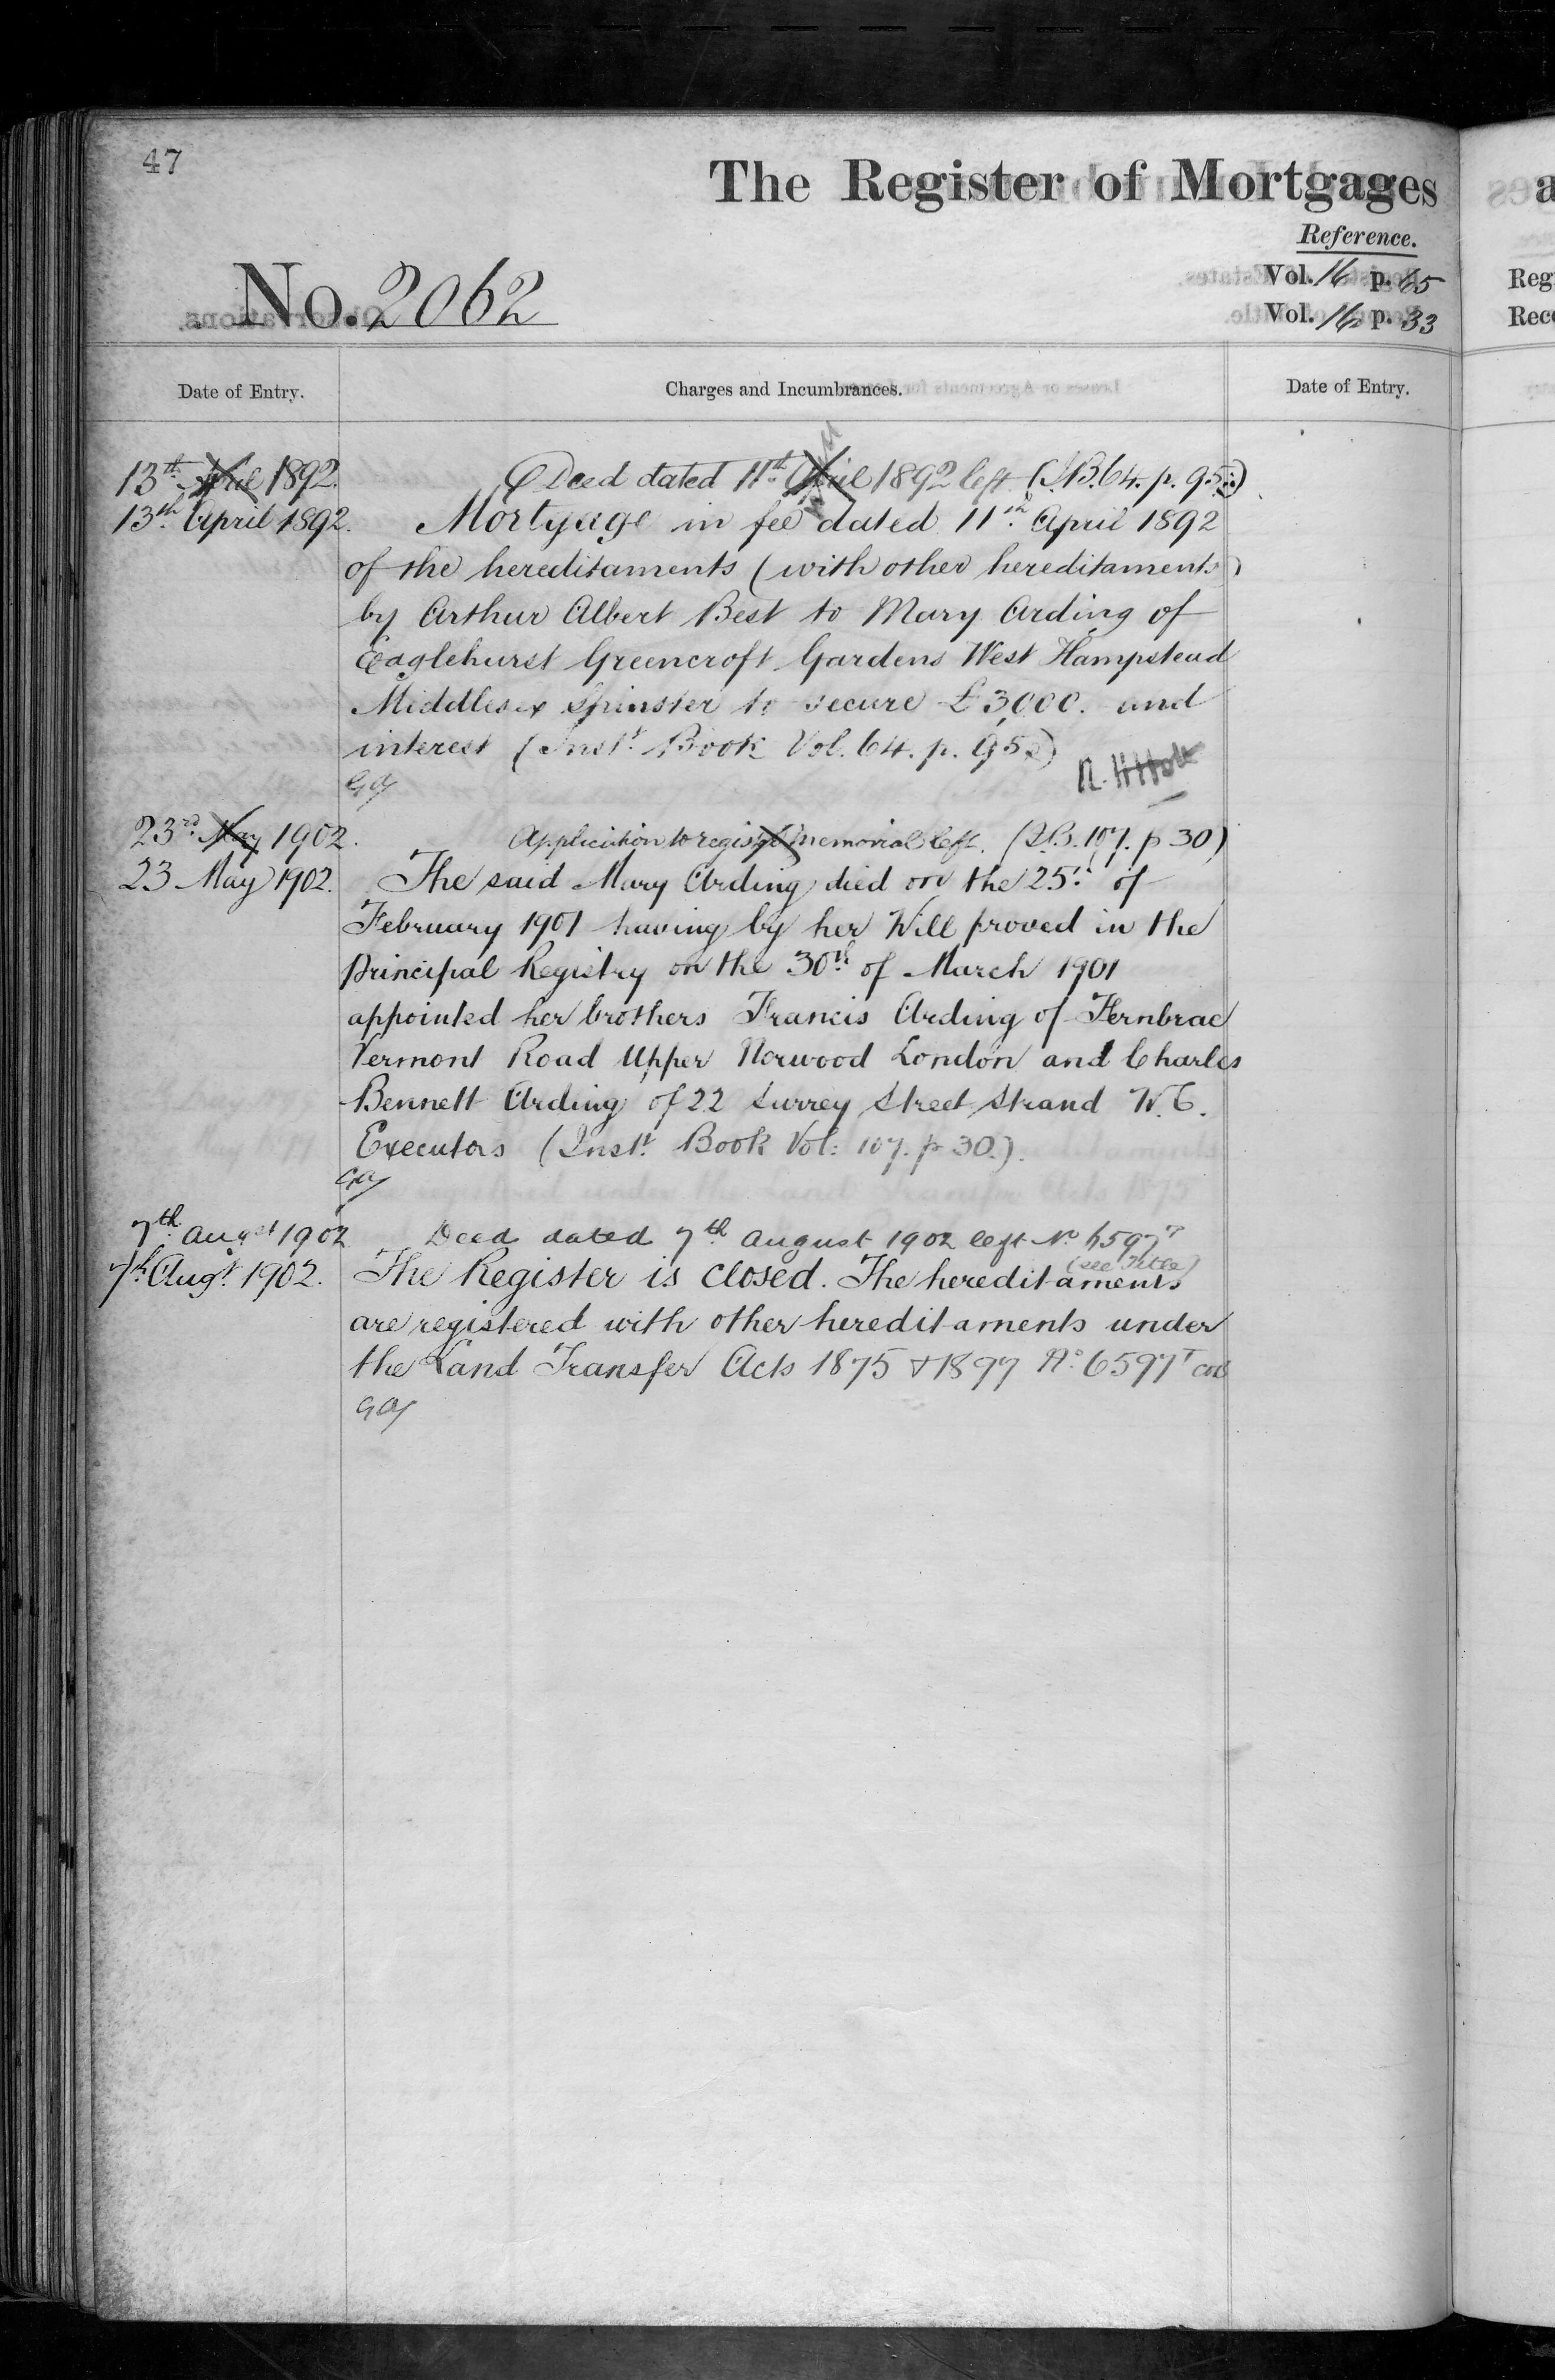 47
The Register of Mortgages
Reference.
No. 2062
Vol. 16 p. 65
Vol. 16 p. 33
Date of Entry. Charges and Incumbrances. Date of Entry.
13th April 1892. Deed dated 11th April 1892 left (I.B. 64. p. 95)
13th April 1892. Mortgage in fee dated 11th April 1892
of the hereditaments (with other hereditaments)
by Arthur Albert Best to Mary Arding of
Eaglehurst Greencroft Gardens West Hampstead
Middlesex Spinster to secure £3,000. and
interest (Inst. Book Vol. 64. p. 95)
R. H Holt
GA
23rd May 1902. Application to register memorial left. (I.B. 107. p 30)
23 May 1902. The said Mary Arding died on the 25th of
February 1901 having by her Will proved in the
Principal Registry on the 30th of March 1901
appointed her brothers Francis Arding of Fernbrae
Vermont Road Upper Norwood London and Charles
Bennett Arding of 22 Surrey Street Strand W.C.
Executors (Inst. Book Vol: 107. p 30.).
GA
7th Augst 1902 Deed dated 7th August 1902 left No 6597T
(see Title)
7th Augt. 1902. The Register is closed. The hereditaments
are registered with other hereditaments under
the Land Transfer Acts 1875 & 1897 No 6597T
GA
Reg
Rec